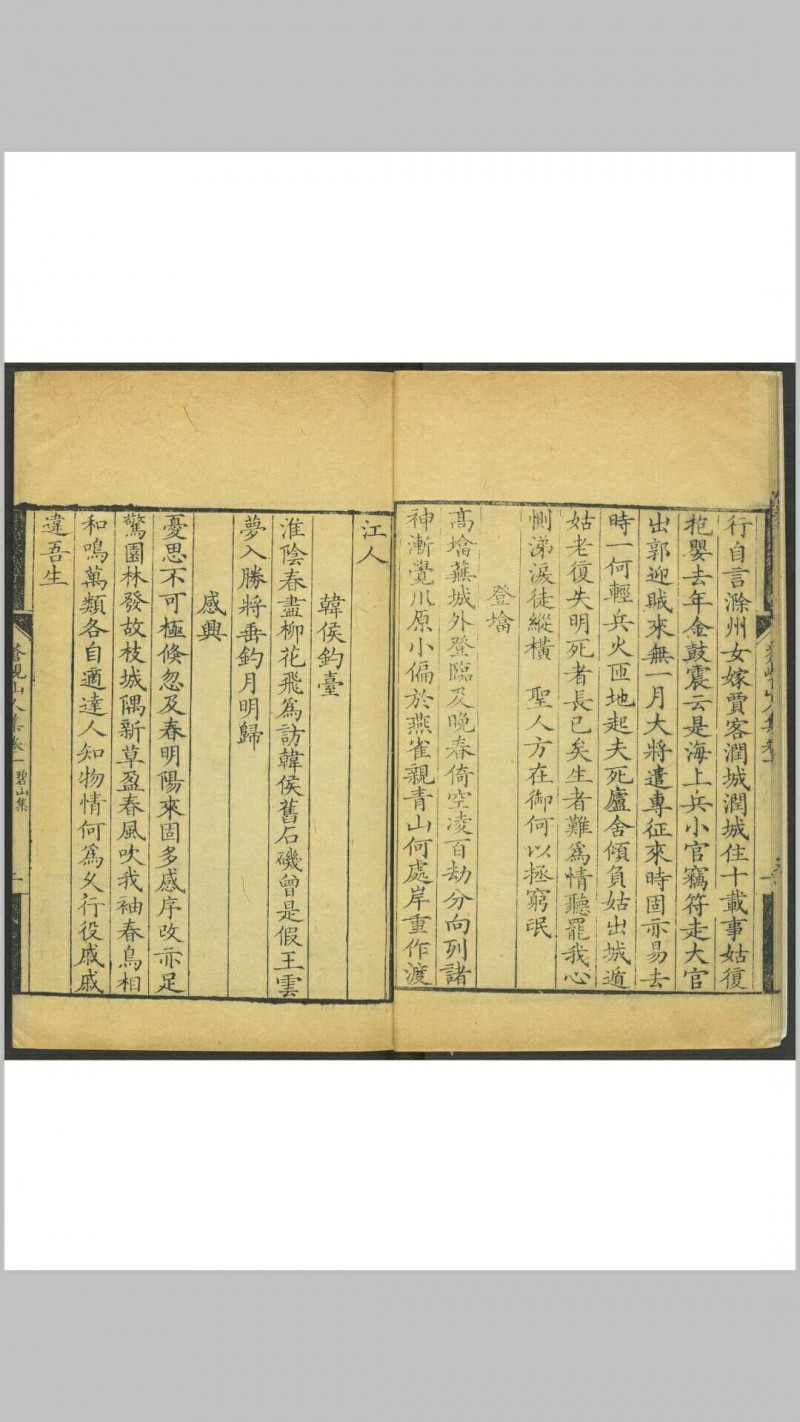 行自言滁州女嫁賈客潤城潤城住十載事姑復
抱嬰去年金鼓震云是海上兵小官竊符走大官
出郭迎賊來無一月大將遣專征來時固亦易去
時一何輕兵火匝地起夫死廬舍傾負姑出城遁
姑老復失明死者長已矣生者難為情聽罷我心
惻涕淚徒縱橫 聖人方在御何以拯窮氓
登墖
高墖蕪城外登臨及晚春倚空凌百劫分向列諸
神漸覺川原小偏於燕雀親青山何處岸重作渡
江人
韓侯釣臺
淮陰春盡柳花飛為訪韓侯舊石磯曾是假王雲
夢入勝將垂釣月明歸
感興
憂思不可極倏忽及春明陽來固多感序改亦足
驚園林發故枝城隅新草盈春風吹我袖春鳥相
和鳴萬類各自適達人知物情何為久行役戚戚
違吾生
山人集卷一 碧山集